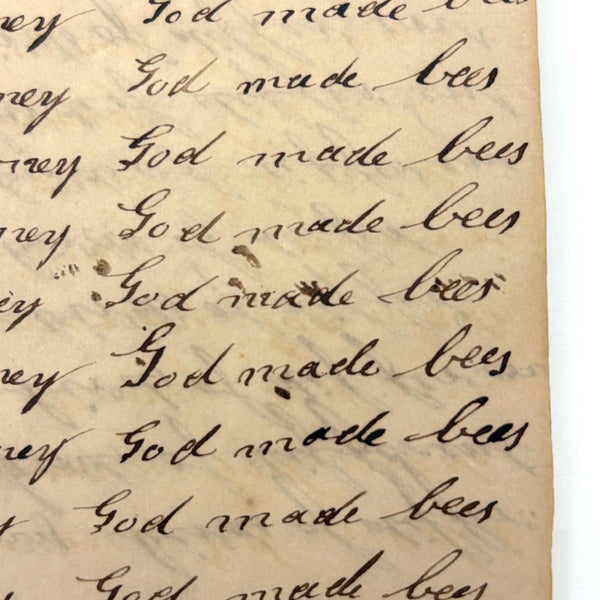 ney God made bees
ney God made bees
ney God made bees
ney God made bees
ey God made bees
ney God made bees
ney God made bees
y God made bees
God made bees